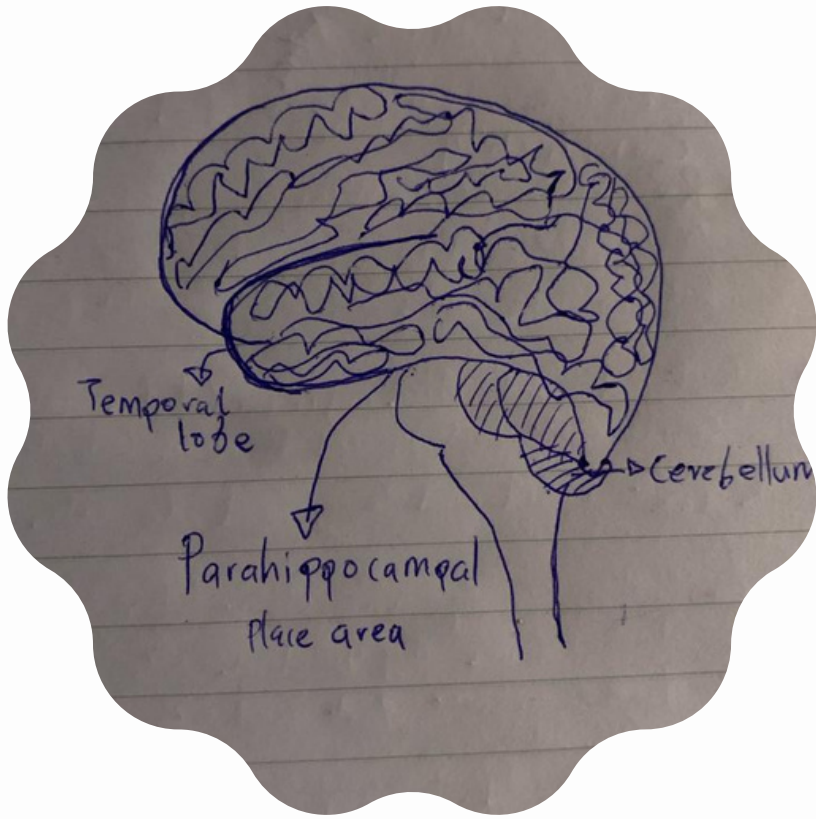 Temporal
lobe
Cerebellum
Parahippocampal
place area